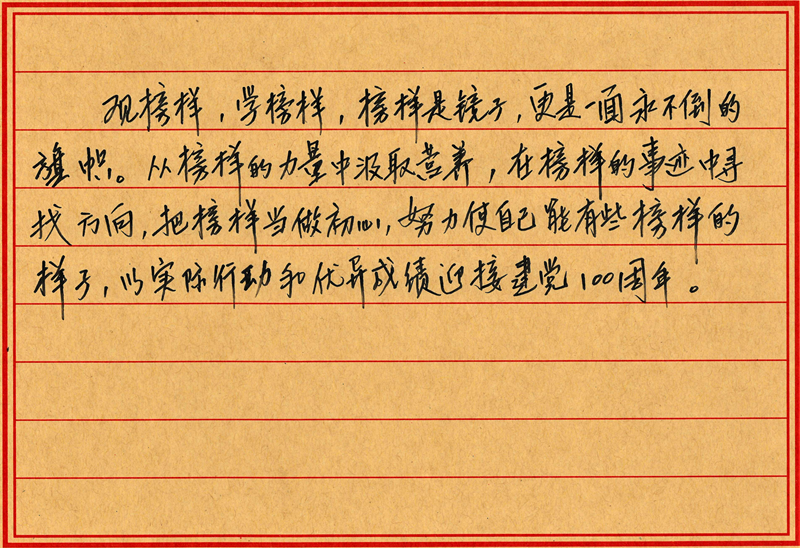 观榜样，学榜样，榜样是镜子，更是一面永不倒的
旗帜。从榜样的力量中汲取营养，在榜样的事迹中寻
找方向，把榜样当做初心，努力使自己能有些榜样的
样子，以实际行动和优异成绩迎接建党100周年。